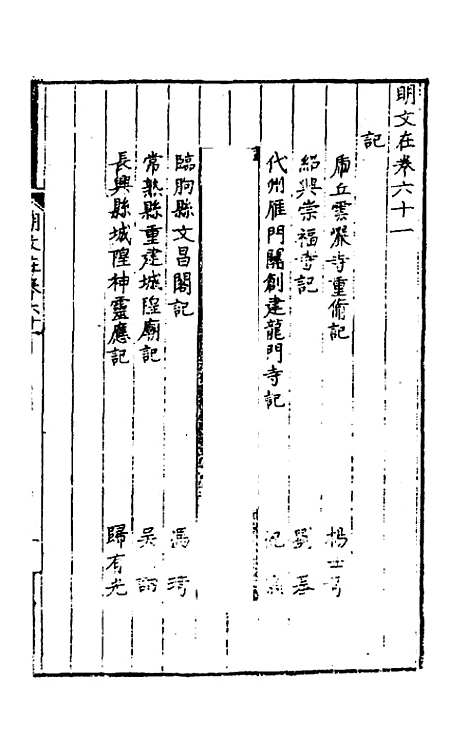 明文在卷六十一
記
虎丘雲巖寺重脩記 楊士奇
紹興崇福寺記 劉基
代州雁門關創建龍門寺記
臨朐縣文昌閣記 馮琦
常熟縣重建城隍廟記 吳訥
長興縣城隍神靈應記 歸有光
明文在卷六十一